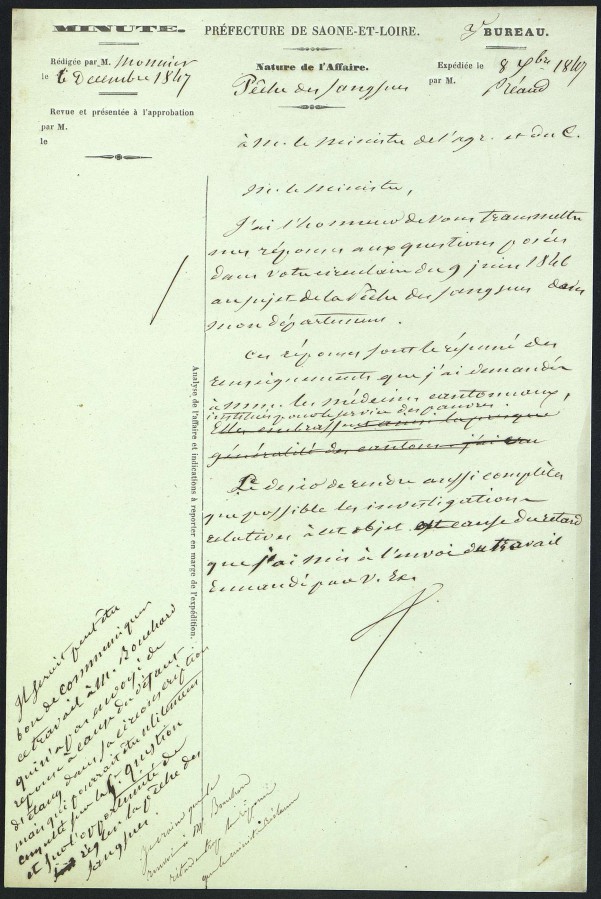 MINUTE.
PRÉFECTURE DE SAONE-ET-LOIRE.
BUREAU.
Rédigée par M. Monnier
le 6 Décembre 1847
Nature de l'Affaire.
Pêche des Sangsues
Expédiée le 8 Xbre 1847
par M. Réaud
Revue et présentée à l'approbation
par M.
le
à M. le Ministre de l'agr. et du C.
M. le Ministre,
J'ai l'honneur de vous transmettre
mes réponses aux questions posées
dans votre circulaire du 9 juin 1846
au sujet de la Pêche des Sangsues dans
mon département.
Ces réponses sont le résumé des
renseignements que j'ai demandés
à MM. les médecins cantonnaux,
institués pour le service des pauvres.
Elles embrassent aussi la presque
généralité des cantons. j'ai cru
Le désir de rendre aussi complètes
que possible les investigations
relatives à cet objet est cause du retard
que j'ai mis à l'envoi du travail
demandé par V. Ex.
Analyse de l'affaire et indications à reporter en marge de l'expédition.
Il serait peut être
bon de communiquer
ce travail à M. Bouchard
qui n'a pas envoyé de
réponse à cause du défaut
d'étang dans sa circonscription
mais qui pourrait être utilement
consulté sur la question
et sur l'opportunité de
régler la pêche des
sangsues.
je crois que le
renvoi à M. Bouchard
retarderait trop la réponse
que le ministre réclame